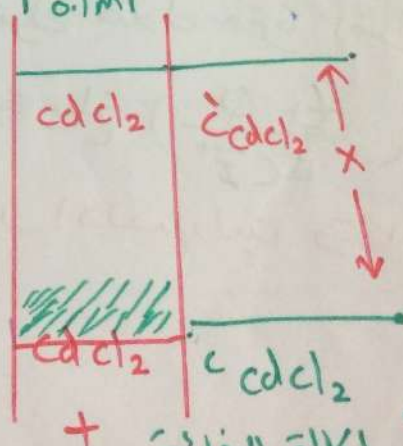 0.1M
cdcl₂ C cdcl₂
X
cdcl₂ C cdcl₂
+